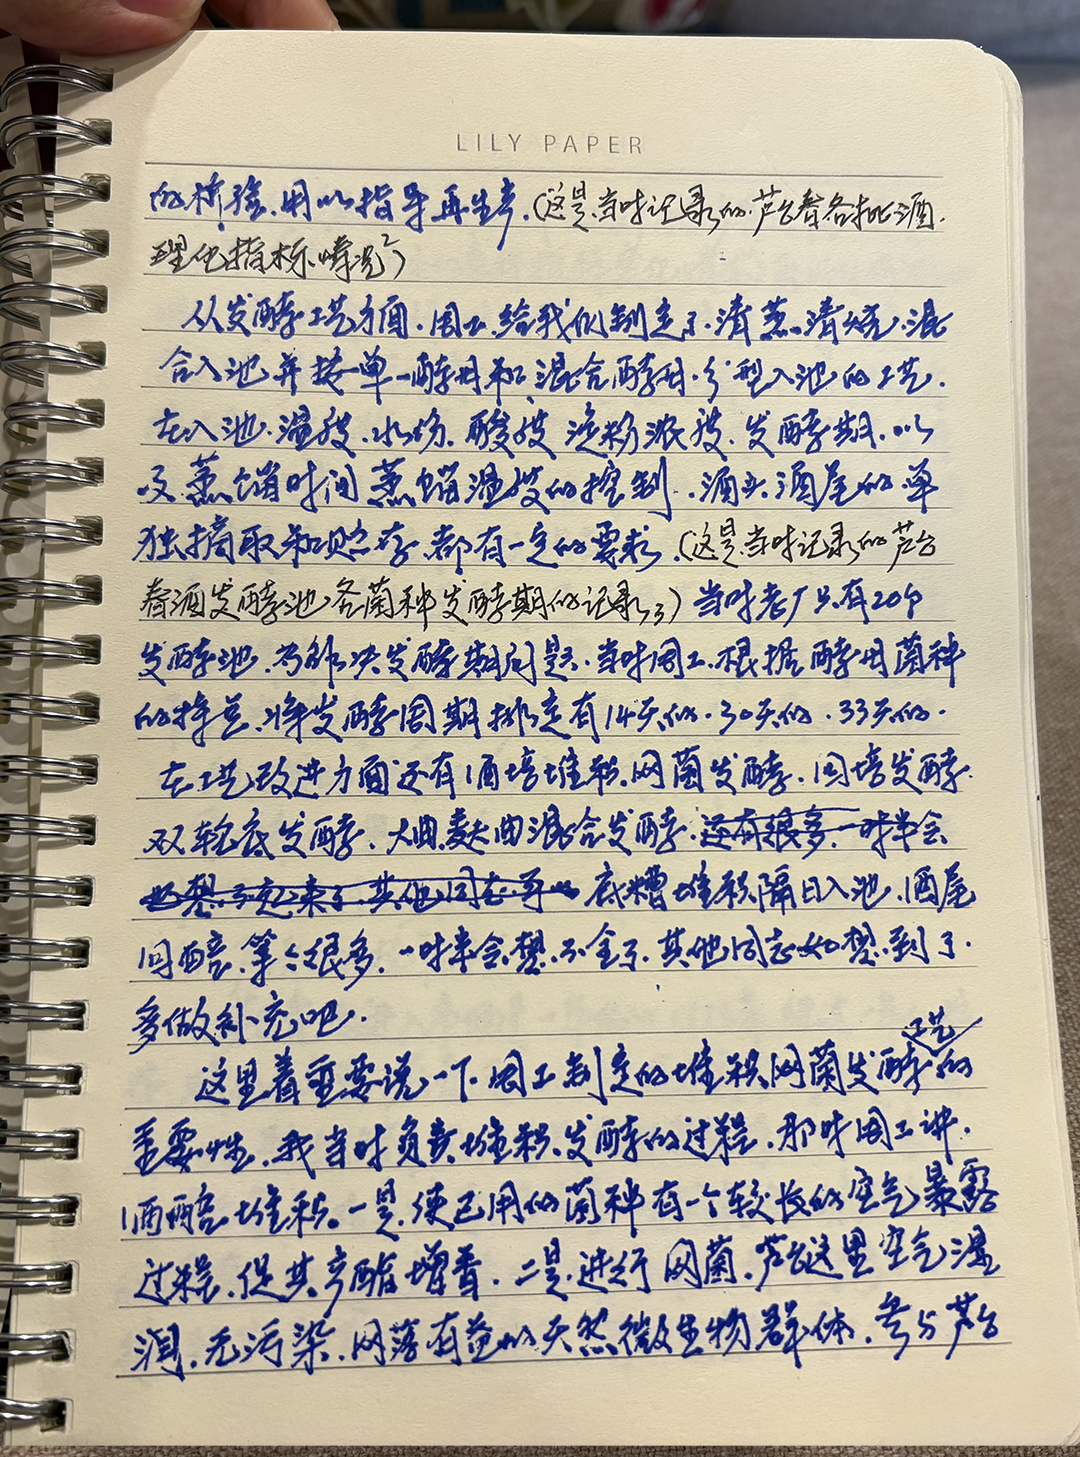 LILY PAPER
的桥梁.用以指导再生产.(这是.当时记录的.芦台春各批酒.
理化指标.情况2)
从发酵工艺方面.周工.给我们制定了.清蒸.清烧.混
合入池并按单一酵母和.混合酵母.分型入池的工艺.
在入池.温度.水份.酸度淀粉浓度.发酵期.以
及蒸馏时间蒸馏温度的控制.酒头酒尾的单
独摘取和贮存.都有一定的要求.(这是当时记录的芦台
春酒发酵池各菌种发酵期的记录3)当时老厂只有20个
发酵池.为解决发酵期问题.当时周工.根据酵母菌种
的特点.将发酵周期排定有14天的.30天的.33天的.
在工艺改进方面还有酒培堆积.网菌发酵.回培发酵.
双轮底发酵.大曲.麸曲混合发酵.还有很多.一时半会
想不起来了.其他同志再 底糟堆积隔日入池.酒尾
回醅.等等很多.一时半会想.不全了.其他同志如想.到了.
多做补充吧.
工艺
这里着重要说一下.周工制定的堆积网菌发酵的
重要性.我当时负责堆积发酵的过程.那时周工讲.
酒醅堆积.一是.使已用的菌种有一个较长的空气暴露
过程.促其产酯增香.二是.进行网菌.芦台这里空气湿
润.无污染.网落有益的天然微生物群体.参与芦台